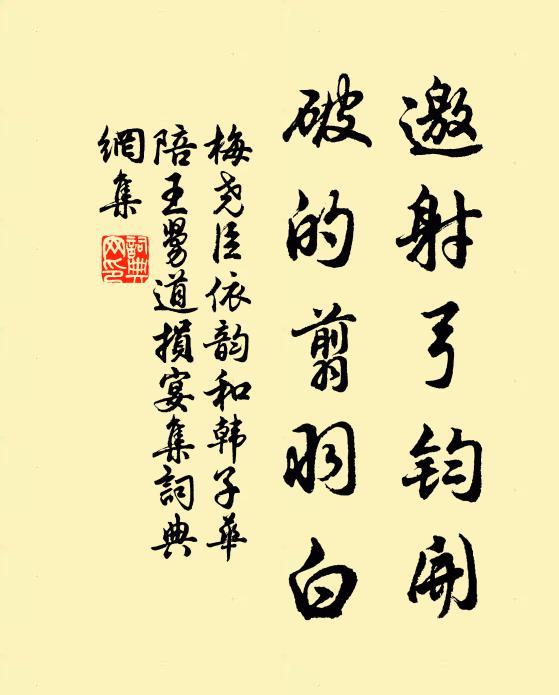 邀射弓鈞開
破的翦羽白
梅堯臣依韵和韩子華
陪王舅道損宴集詞典
網集
詞典網印